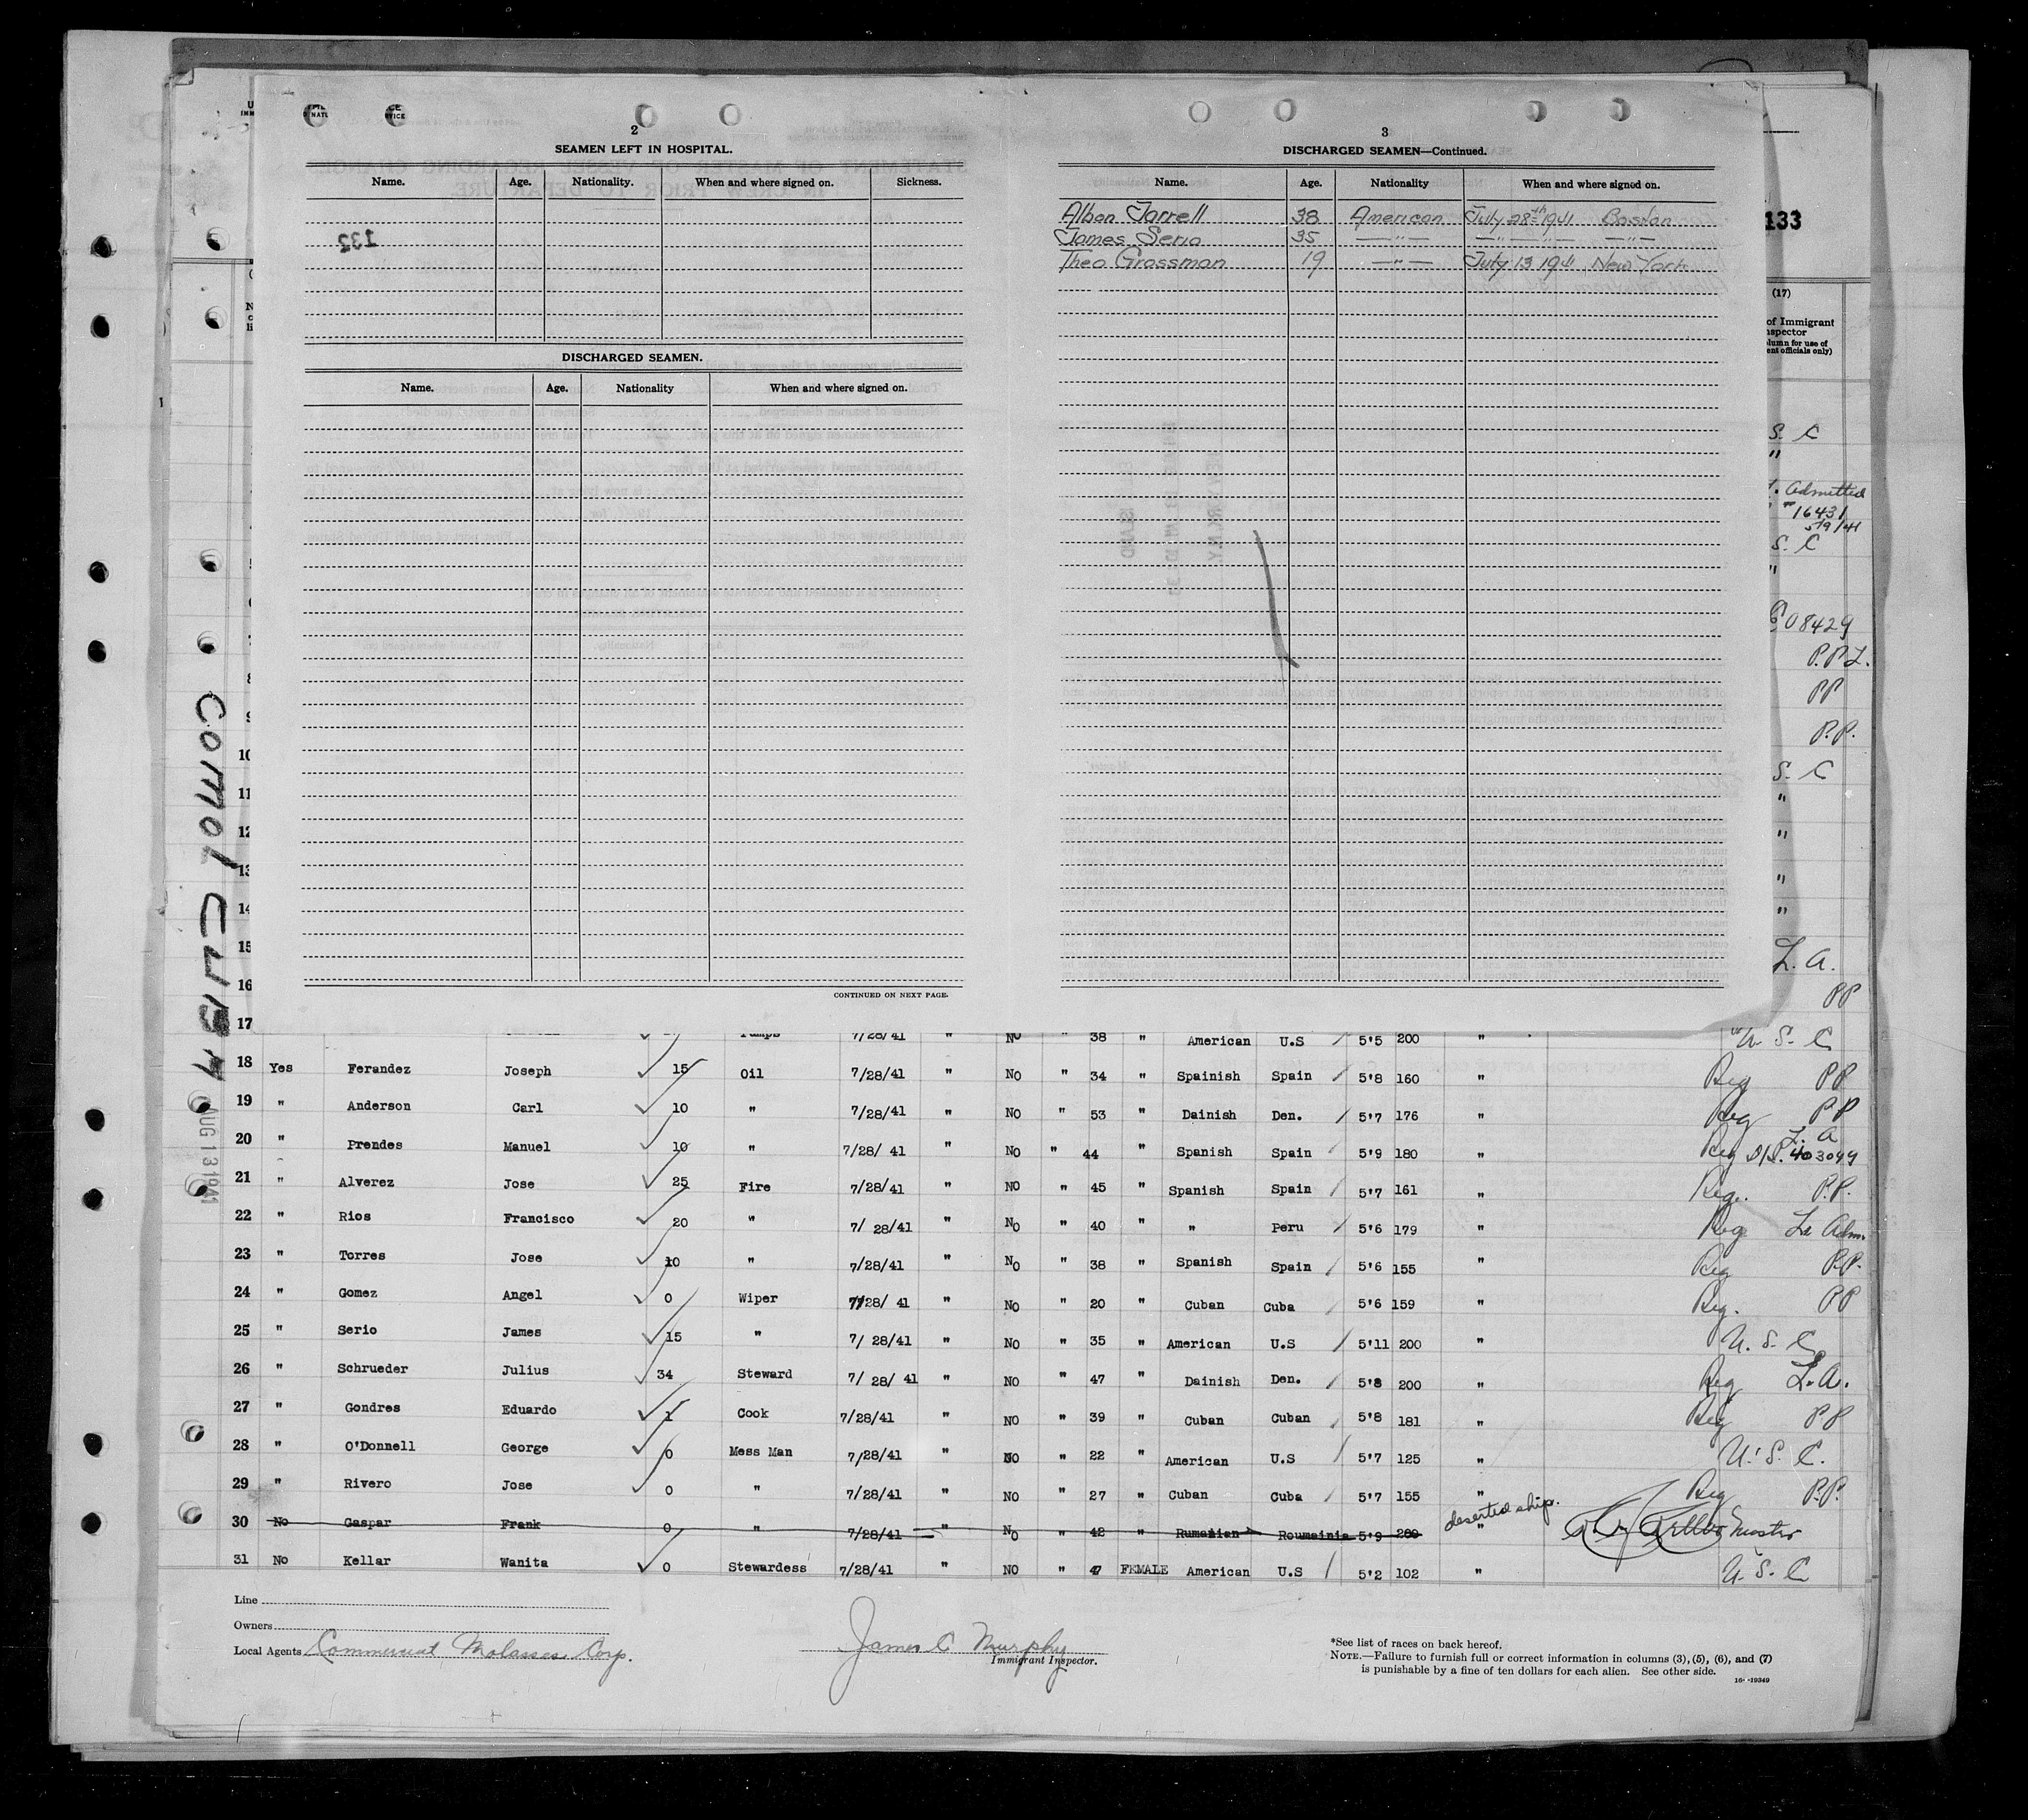 2
SEAMEN LEFT IN HOSPITAL.
Name. Age. Nationality. When and where signed on. Sickness.
132
DISCHARGED SEAMEN.
Name. Age. Nationality When and where signed on.
CONTINUED ON NEXT PAGE.
3
DISCHARGED SEAMEN—Continued.
Name. Age. Nationality When and where signed on.
Alban Jarrell 38 American July 28th 1941 Boston
James Serio 35 —"— —"— —"— —"—
Theo Grossman 19 —"— July 13 1941 New York
133
(17)
of Immigrant
nspector
lumn for use of
ent officials only)
S. C
"
Admitted
16431
5/9/41
S. C
"
08429
P.P.L.
PP
P.P.
S. C
"
"
"
"
L. A.
PP
Comol Cuba
AUG 13 1941
8
9
10
11
12
13
14
15
16
17 7/28/41 " No " 38 " American U.S 5'5 200 " U. S. C
18 Yes Ferandez Joseph 15 Oil 7/28/41 " No " 34 " Spainish Spain 5'8 160 " Reg PP
19 " Anderson Carl 10 " 7/28/41 " No " 53 " Dainish Den. 5'7 176 " Reg PP
20 " Prendes Manuel 10 " 7/28/ 41 " No " 44 " Spanish Spain 5'9 180 " Reg L. A
403049
21 " Alverez Jose 25 Fire 7/28/41 " NO " 45 " Spanish Spain 5'7 161 " Reg. P.P.
22 " Rios Francisco 20 " 7/ 28/41 " No " 40 " " Peru 5'6 179 " Reg Adm.
23 " Torres Jose 10 " 7/28/41 " No " 38 " Spanish Spain 5'6 155 " Reg P.P.
24 " Gomez Angel 0 Wiper 7/28/ 41 " No " 20 " Cuban Cuba 5'6 159 " Reg. PP
25 " Serio James 15 " 7/ 28/41 " No " 35 " American U.S 5'11 200 " U. S. C
26 " Schrueder Julius 34 Steward 7/ 28/ 41 " NO " 47 " Dainish Den. 5'8 200 " Reg L.A.
27 " Gondres Eduardo 1 Cook 7/28/41 " NO " 39 " Cuban Cuban 5'8 181 " Reg PP
28 " O'Donnell George 0 Mess Man 7/28/41 " NO " 22 " American U.S 5'7 125 " U. S. C.
29 " Rivero Jose 0 " 7/28/41 " NO " 27 " Cuban Cuba 5'7 155 " Reg P.P.
30 No Gaspar Frank 0 " 7/28/41 " No " 42 " Rumanian Roumainia 5'9 200 " deserted ship.
31 No Kellar Wanita 0 Stewardess 7/28/41 " NO " 47 FEMALE American U.S 5'2 102 " U. S. C
Line
Owners
Local Agents Commercial Molasses Corp.
James C Murphy
Immigrant Inspector.
*See list of races on back hereof.
NOTE.—Failure to furnish full or correct information in columns (3), (5), (6), and (7)
is punishable by a fine of ten dollars for each alien. See other side.
16—19349